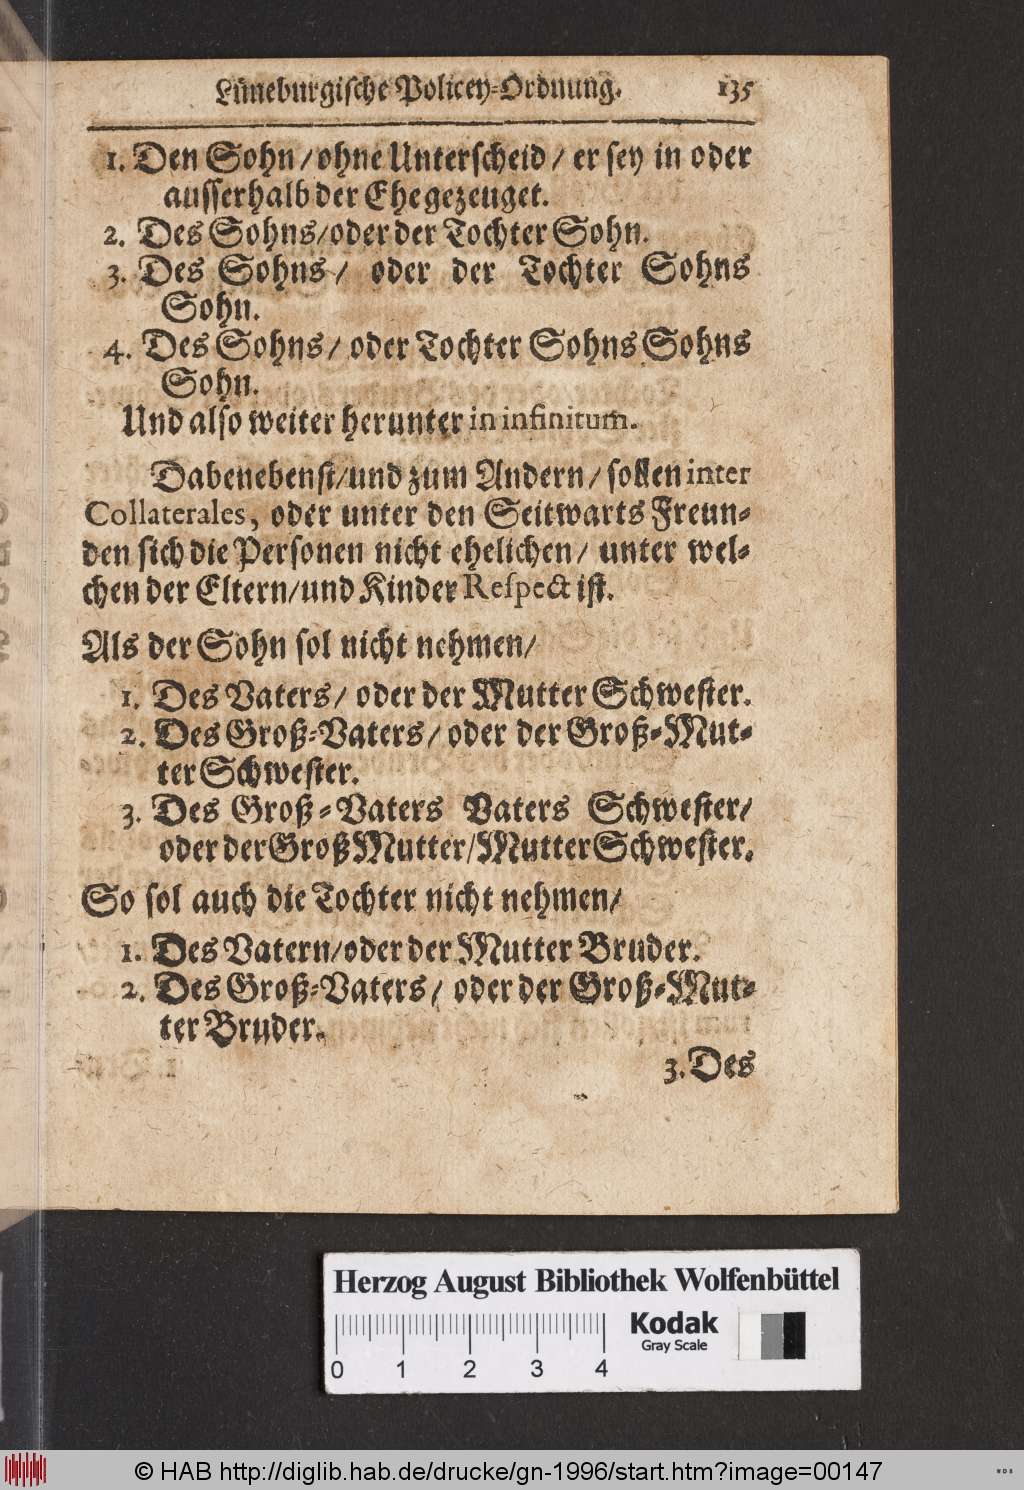 Lüneburgische Policey-Ordnung. 135
1. Den Sohn/ohne Unterscheid/ er sey in oder
ausserhalb der Ehe gezeuget.
2. Des Sohns/oder der Tochter Sohn.
3. Des Sohns/ oder der Tochter Sohns
Sohn.
4. Des Sohns/ oder Tochter Sohns Sohns
Sohn.
Und also weiter herunter in infinitum.
Dabenebenst/und zum Andern/ sollen inter
Collaterales, oder unter den Seitwarts Freun-
den sich die Personen nicht ehelichen/ unter wel-
chen der Eltern/und Kinder Respect ist.
Als der Sohn sol nicht nehmen/
1. Des Vaters/ oder der Mutter Schwester.
2. Des Groß-Vaters/ oder der Groß-Mut-
ter Schwester.
3. Des Groß-Vaters Vaters Schwester/
oder der Groß Mutter/Mutter Schwester.
So sol auch die Tochter nicht nehmen/
1. Des Vatern/oder der Mutter Bruder.
2. Des Groß-Vaters/ oder der Groß-Mut-
ter Bruder.
3. Des
Herzog August Bibliothek Wolfenbüttel
Kodak
Gray Scale
0 1 2 3 4
© HAB http://diglib.hab.de/drucke/gn-1996/start.htm?image=00147